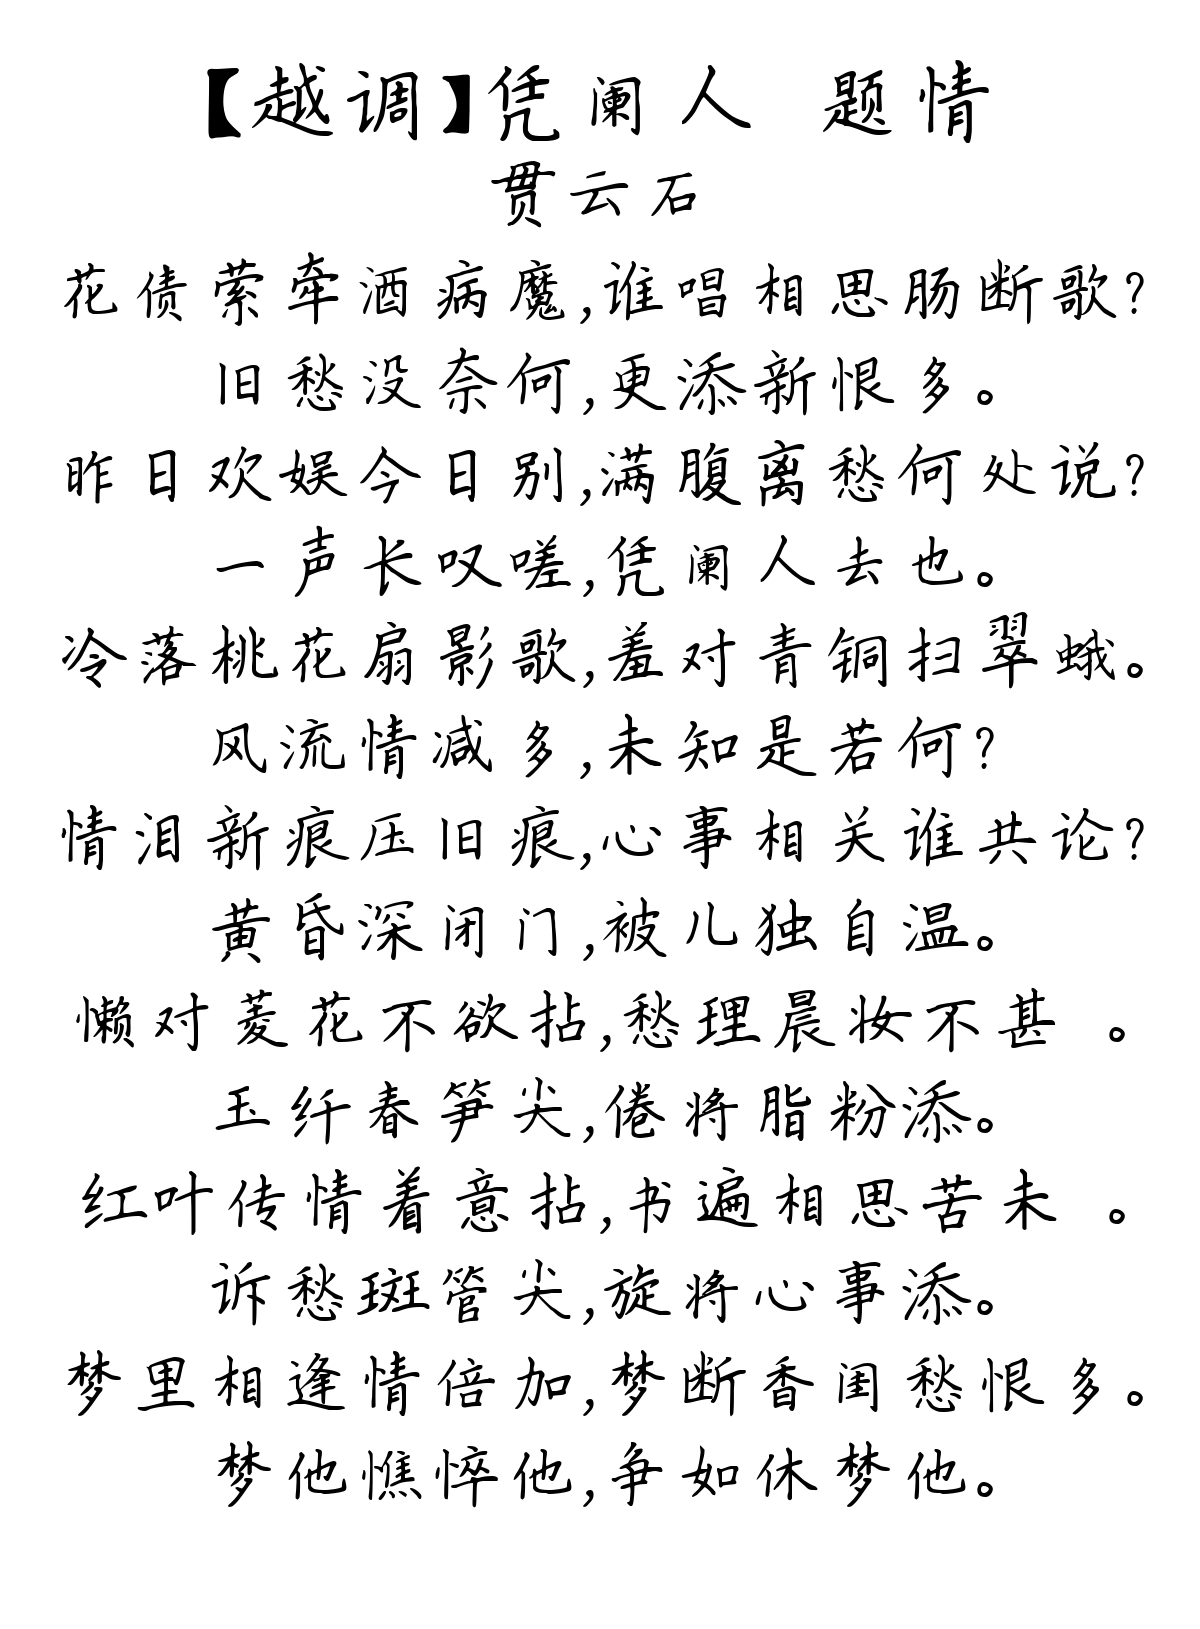 【越调】凭阑人 题情
贯云石
花债萦牵酒病魔,谁唱相思肠断歌?
旧愁没奈何,更添新恨多。
昨日欢娱今日别,满腹离愁何处说?
一声长叹嗟,凭阑人去也。
冷落桃花扇影歌,羞对青铜扫翠蛾。
风流情减多,未知是若何?
情泪新痕压旧痕,心事相关谁共论?
黄昏深闭门,被儿独自温。
懒对菱花不欲拈,愁理晨妆不甚 。
玉纤春笋尖,倦将脂粉添。
红叶传情着意拈,书遍相思苦未 。
诉愁斑管尖,旋将心事添。
梦里相逢情倍加,梦断香闺愁恨多。
梦他憔悴他,争如休梦他。